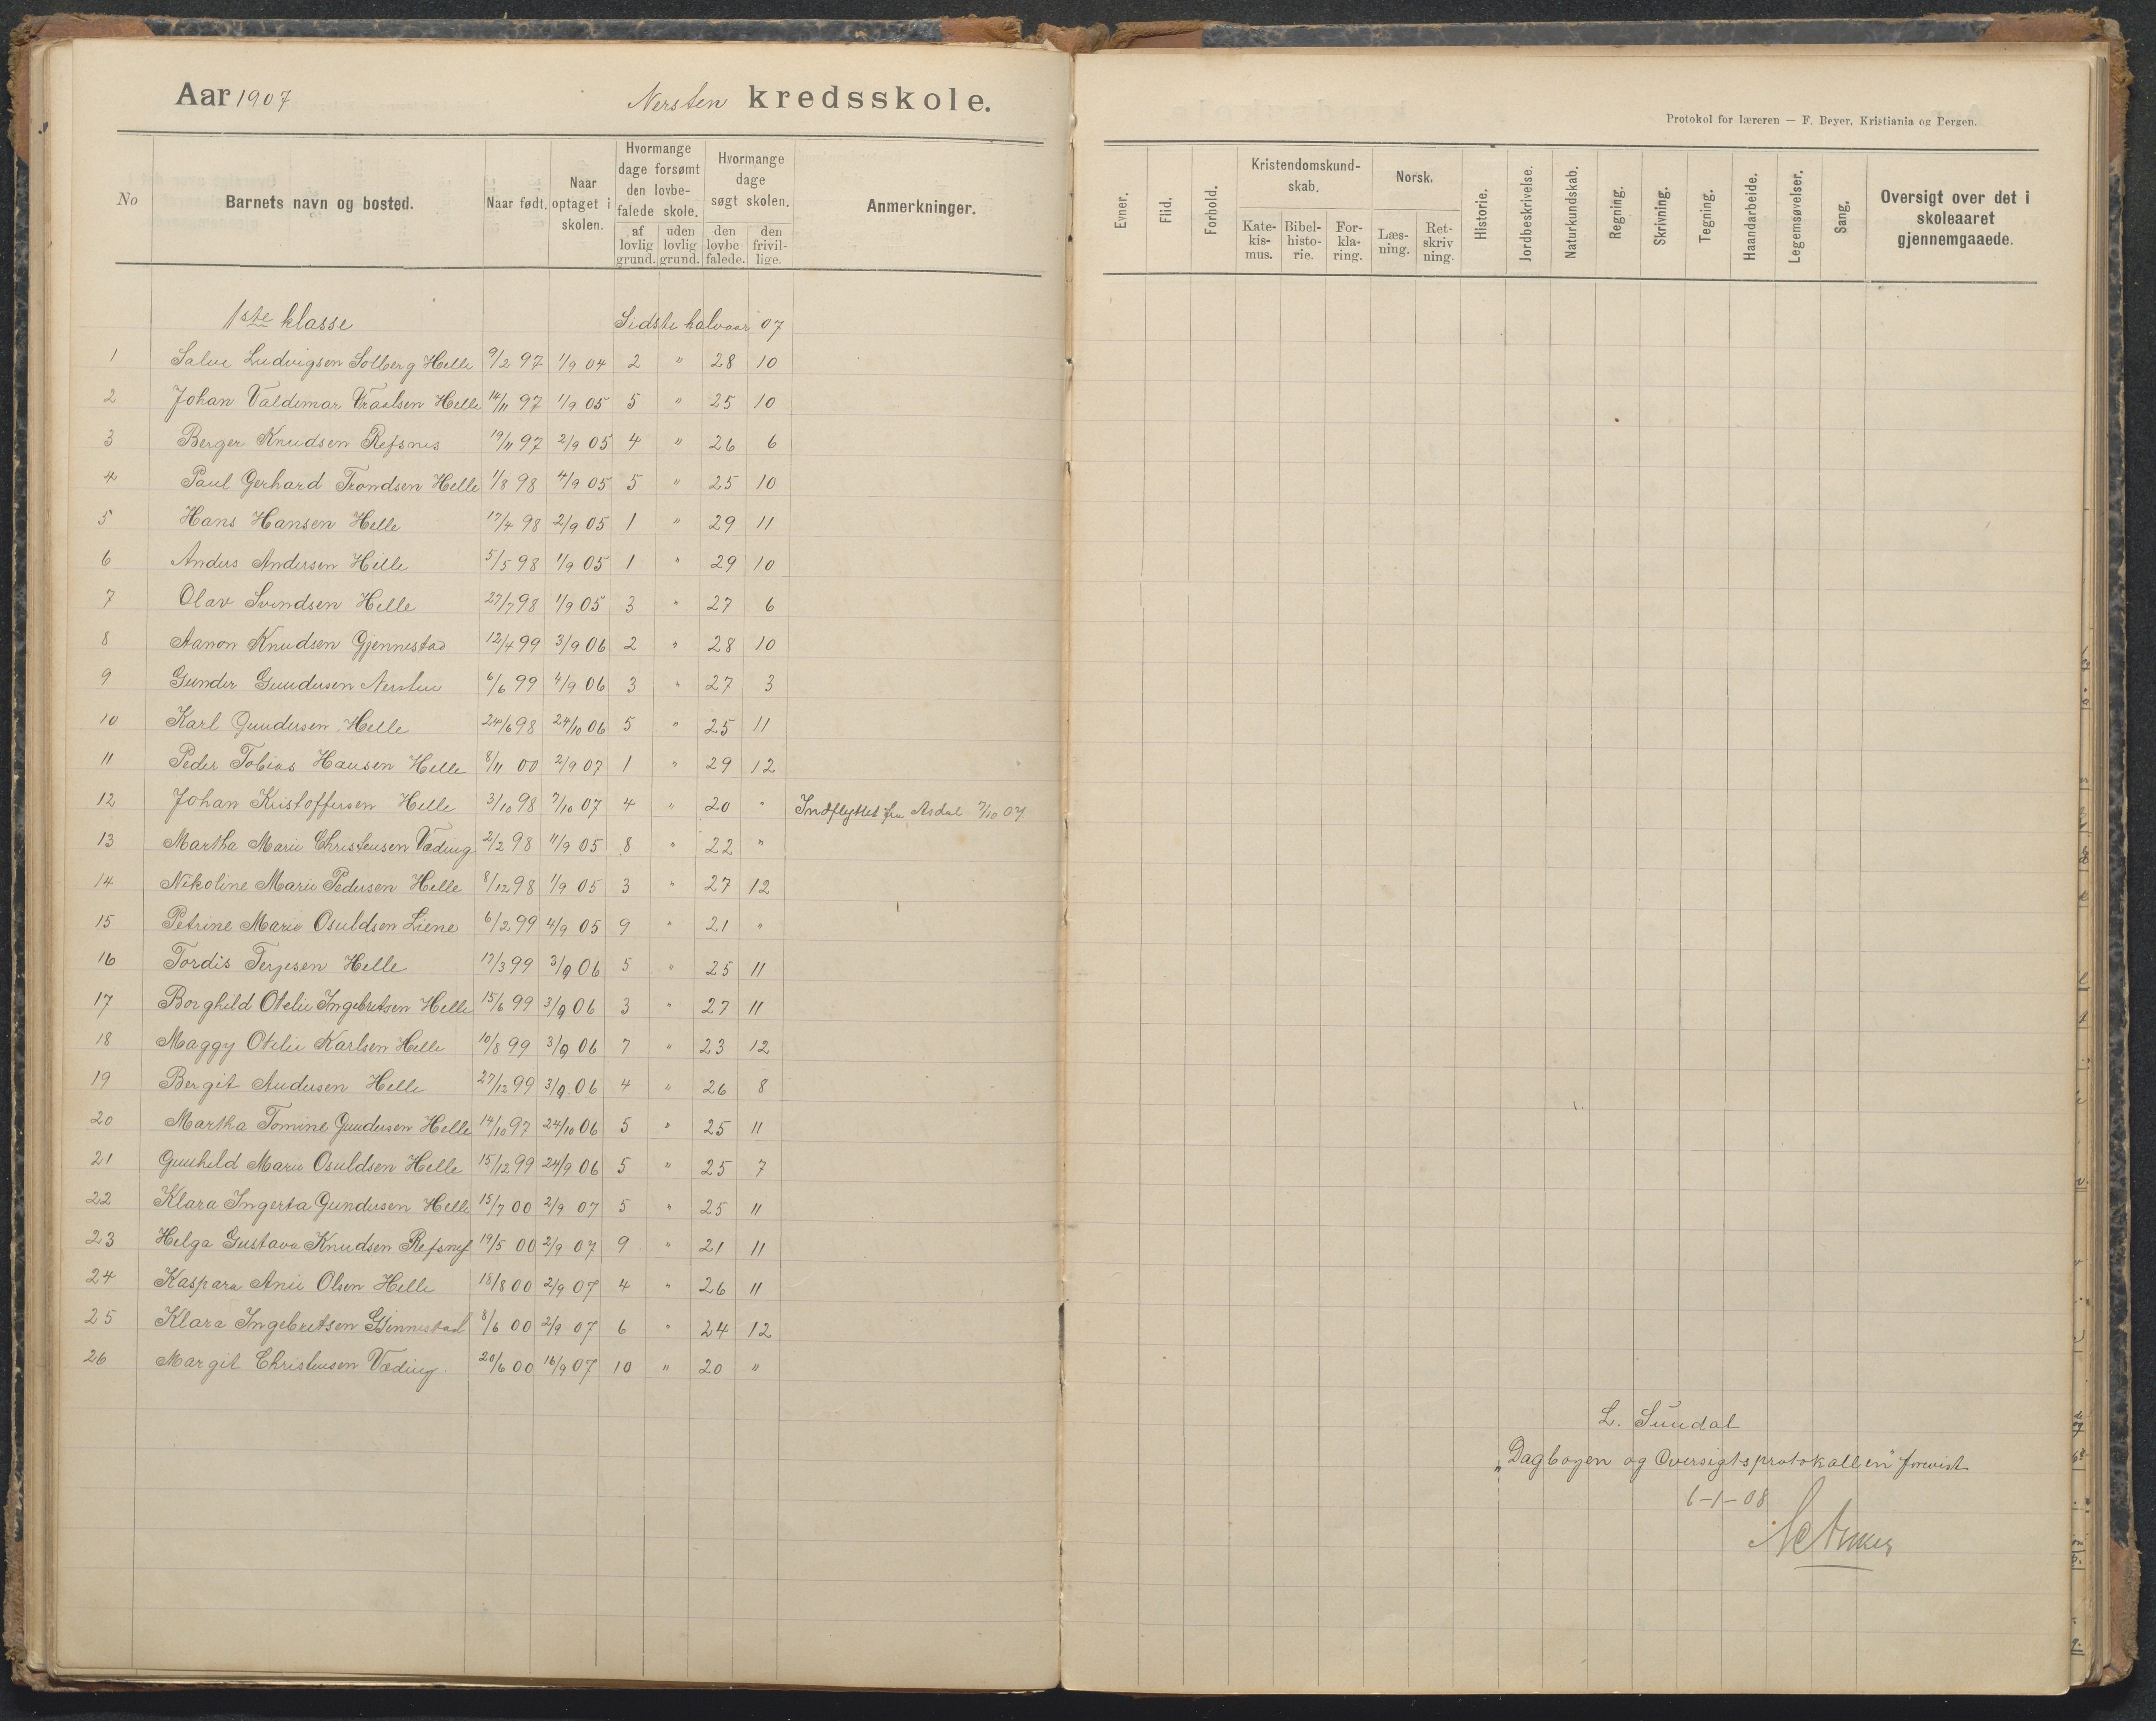 Aar 1907 Nersten kredsskole.
No Barnets navn og bosted. Naar født. Naar optaget i skolen. Hvormange dage forsømt den lovbefalede skole. af lovlig grund. uden lovlig grund. Hvormange dage søgt skolen. den lovbefalede. den frivillige. Anmerkninger.
1ste klasse Sidste halvaar 07
1 Salve Ludvigsen Solberg Helle 9/2 97 1/9 04 2 " 28 10
2 Johan Valdemar Vraalsen Helle 14/11 97 1/9 05 5 " 25 10
3 Berger Knudsen Refsnes 19/11 97 2/9 05 4 " 26 6
4 Paul Gerhard Trondsen Helle 1/8 98 4/9 05 5 " 25 10
5 Hans Hansen Helle 17/4 98 2/9 05 1 " 29 11
6 Anders Andersen Helle 5/5 98 1/9 05 1 " 29 10
7 Olav Svendsen Helle 27/7 98 1/9 05 3 " 27 6
8 Aanon Knudsen Gjennestad 12/4 99 3/9 06 2 " 28 10
9 Gunder Gundersen Nersten 6/6 99 4/9 06 3 " 27 3
10 Karl Gundersen Helle 24/6 98 24/10 06 5 " 25 11
11 Peder Tobias Hansen Helle 8/11 00 2/9 07 1 " 29 12
12 Johan Kristoffersen Helle 3/10 98 7/10 07 4 " 20 " Indflyttet fra Asdal 7/10 07
13 Martha Marie Christensen Væding 2/2 98 11/9 05 8 " 22 "
14 Nikoline Marie Pedersen Helle 8/12 98 1/9 05 3 " 27 12
15 Petrine Marie Osuldsen Liene 6/2 99 4/9 05 9 " 21 "
16 Tordis Terjesen Helle 17/3 99 3/9 06 5 " 25 11
17 Borghild Otelie Ingebretsen Helle 15/6 99 3/9 06 3 " 27 11
18 Maggy Otelie Karlsen Helle 10/8 99 3/9 06 7 " 23 12
19 Bergit Andersen Helle 27/12 99 3/9 06 4 " 26 8
20 Martha Tomine Gundersen Helle 14/10 97 24/10 06 5 " 25 11
21 Gunhild Marie Osuldsen Helle 15/12 99 24/9 06 5 " 25 7
22 Klara Ingerta Gundersen Helle 15/7 00 2/9 07 5 " 25 11
23 Helga Gustava Knudsen Refsnes 19/5 00 2/9 07 9 " 21 11
24 Kaspara Anie Olsen Helle 18/8 00 2/9 07 4 " 26 11
25 Klara Ingebretsen Gjennestad 8/6 00 2/9 07 6 " 24 12
26 Margit Christensen Væding. 20/6 00 16/9 07 10 " 20 "
Protokol for læreren — F. Beyer, Kristiania og Bergen.
Evner. Flid. Forhold. Kristendomskundskab. Katekismus. Bibelhistorie. Forklaring. Norsk. Læsning. Retskrivning. Historie. Jordbeskrivelse. Naturkundskab. Regning. Skrivning. Tegning. Haandarbeide. Legemsøvelser. Sang. Oversigt over det i skoleaaret gjennemgaaede.
L. Sundal
"Dagbogen og Oversigtsprotokollen" forevist
6-1-08